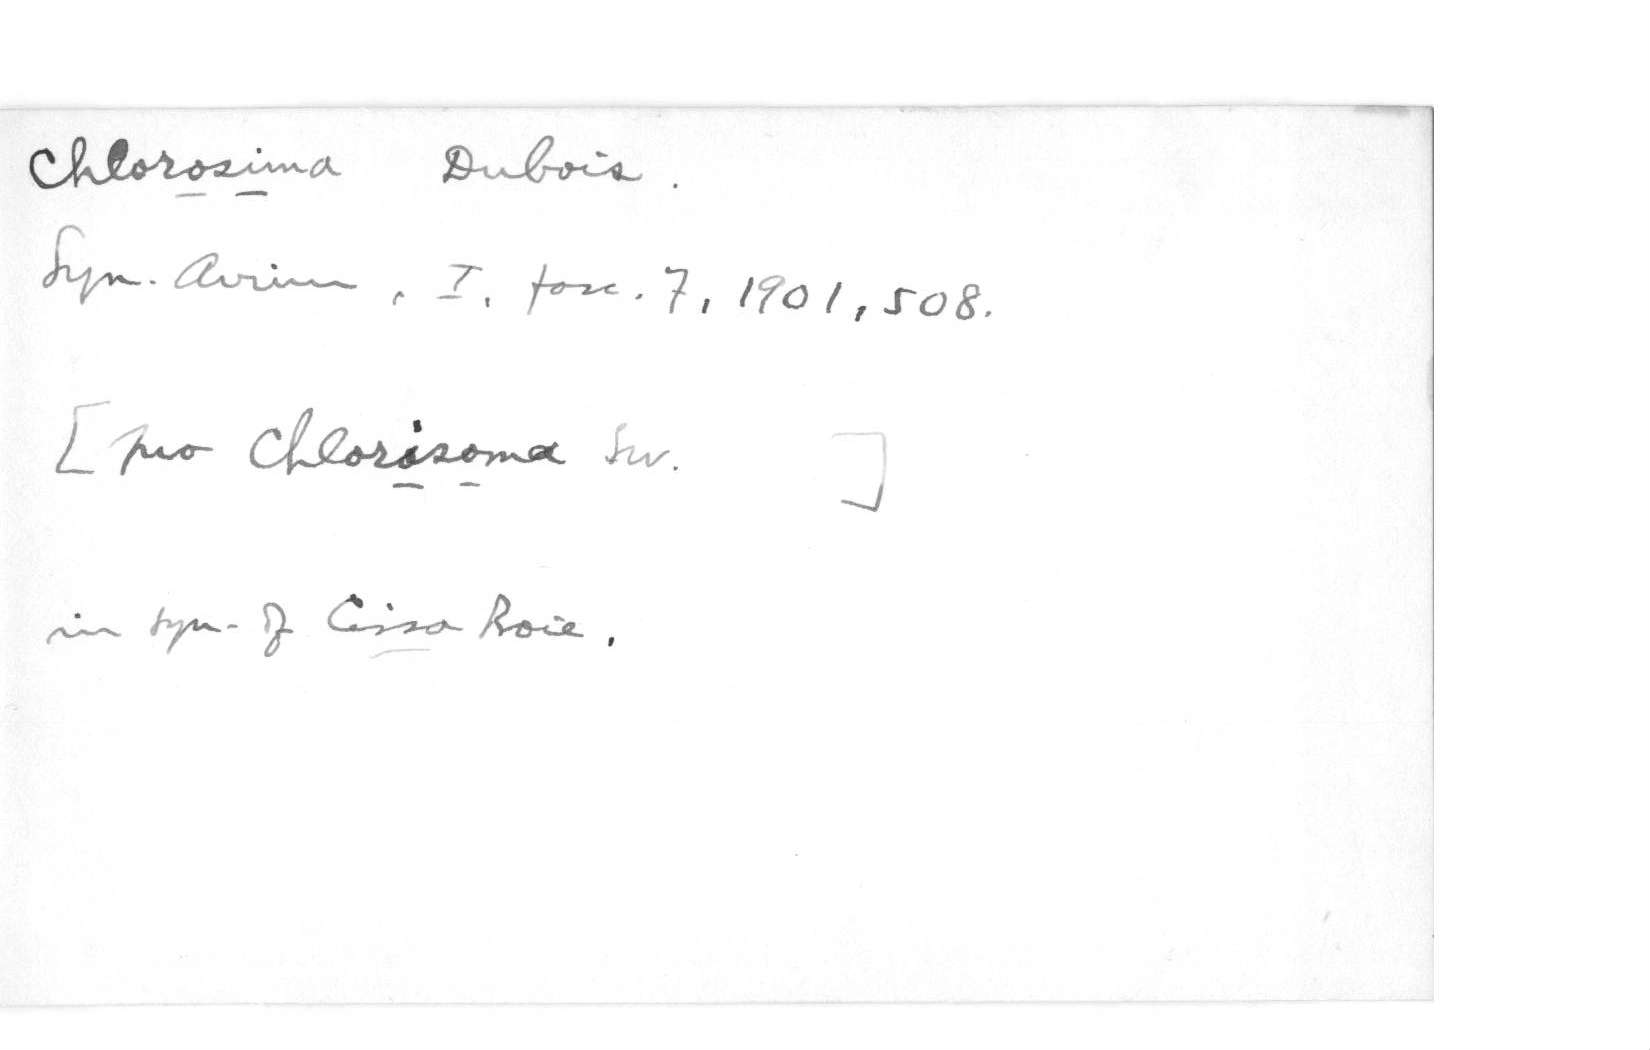 Chlorosima Dubois.
Syn. Avium, I, fasc. 7, 1901, 508.
[pro Chlorisoma Sw. ]
in syn. of Cissa Boie.